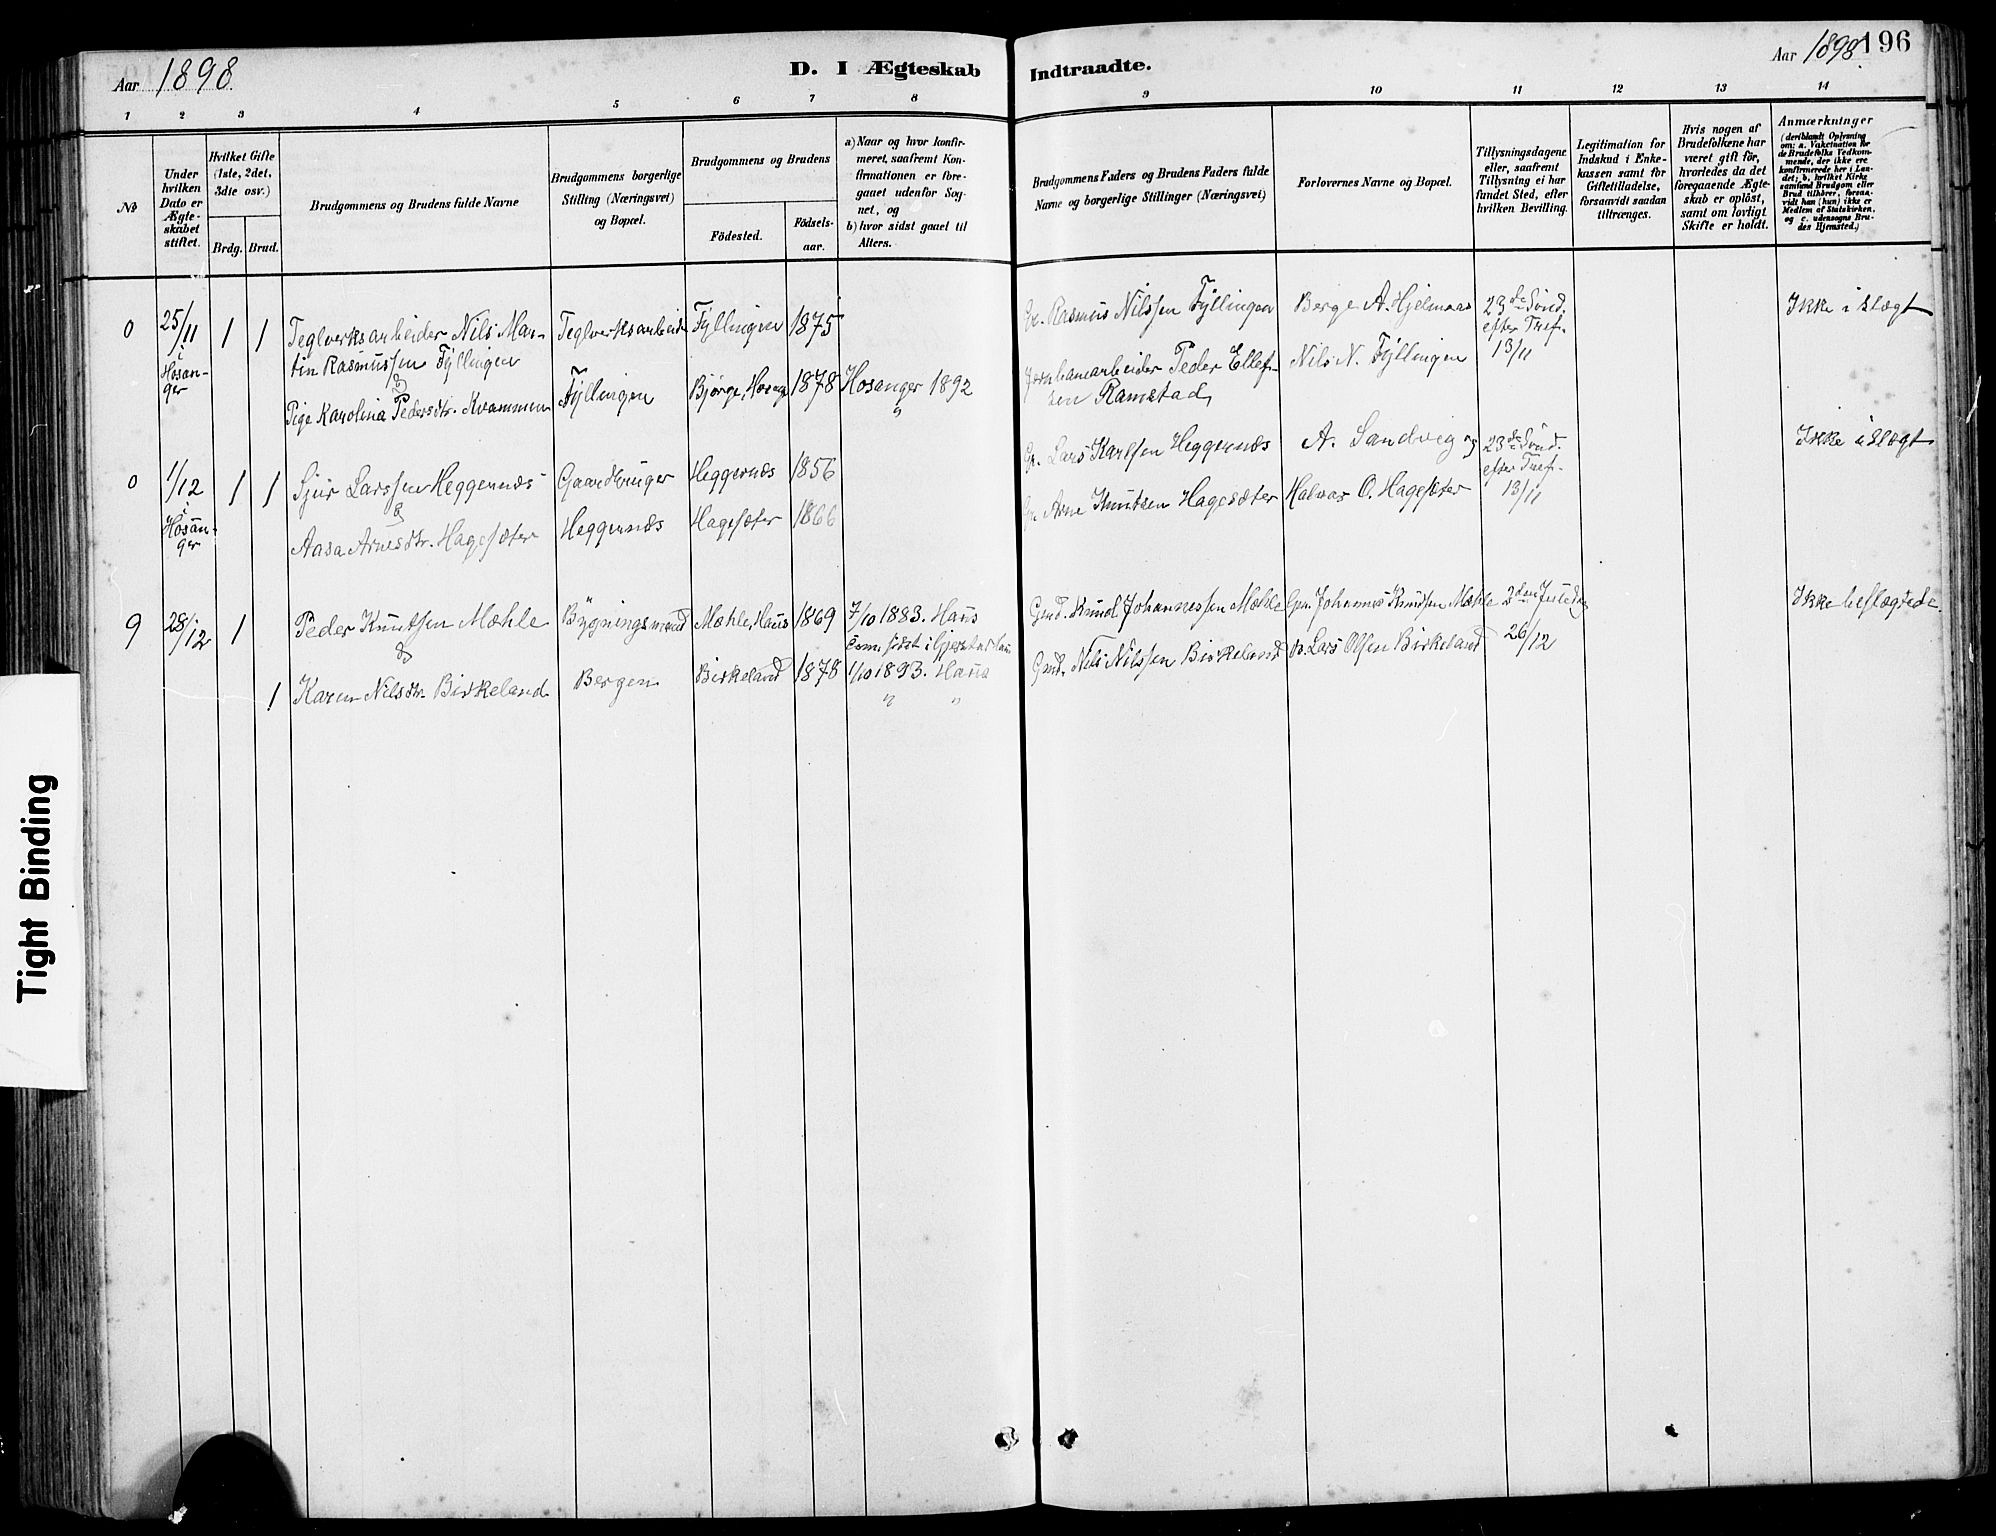 Aar 1898
D. I Ægteskab Indtraadte.
Aar 1898. 196
1 2 3 4 5 6 7 8 9 10 11 12 13 14
No
Under hvilken Dato er Ægteskabet stiftet.
Hvilket Gifte (1ste, 2det, 3die osv.)
Brdg. Brud.
Brudgommens og Brudens fulde Navne
Brudgommens borgerlige Stilling (Næringsvei) og Bopæl.
Brudgommens og Brudens
Födested.
Födsels-aar.
a) Naar og hvor konfir-
meret, saafremt Kon-
firmationen er fore-
gaaet udenfor Sog-
net, og
b) hvor sidst gaaet til
Alters.
Brudgommens Faders og Brudens Faders fulde
Navne og borgerlige Stillinger (Næringsvei)
Forlovernes Navne og Bopæl.
Tillysningsdagene
eller, saafremt
Tillysning ei har
fundet Sted, efter
hvilken Bevilling.
Legitimation for
Indskud i Enke-
kassen samt for
Giftetilladelse,
forsaavidt saadan
tiltrænges.
Hvis nogen af
Brudefolkene har
været gift för,
hvorledes da det
foregaaende Ægte-
skab er oplöst,
samt om lovligt
Skifte er holdt.
Anmærkninger
(deriblandt Oplysning
om: a. Vakcination for
de Brudefolks Vedkom-
mende, der ikke ere
konfirmerede her i Lan-
det; b. hvilket Kirke-
samfund Brudgom eller
Brud tilhörer, forsaa-
vidt han (hun) ikke er
Medlem af Statskirken,
og c. udensogns Bru-
des Hjemsted.)
0 25/11 i Hosan-ger 1 1
Teglverksarbeider Nils Mar-
tin Rasmussen Fyllingen
&
Pige Karolina Pedersdtr. Kvammen
Teglverksarbeid
Fyllingen
Fyllingen 1875
Bjørge, Hosang 1878
Hosanger 1892
"
Gr. Rasmus Nilssen Fyllingen
Jernbanearbeider Peder Ellef-
sen Ramstad
Berge A. Hjelmaas
Nils N. Fyllingen
23de Sönd.
efter Tref.
13/11
Ikke i slægt
0 1/12 i Hosan-ger 1 1
Sjur Larssen Heggernæs
&
Aasa Arnesdtr. Hagesæter
Gaardbruger
Heggernæs
Heggernæs 1856
Hagesæter 1866
Gr. Lars Karlsen Heggernæs
Gr. Arne Knutsen Hagesæter
A. Sandvig og
Halvar O. Hagesæter
23de Sönd.
efter Tref.
13/11
Ikke i slægt
9 28/12 1
Peder Knutsen Mæhle
&
1 Karen Nilsdtr. Birkeland
Bygningsmand
Bergen
Mæhle, Haus 1869
Birkeland 1878
7/10 1883. Haus
Com. sidst i Gjerstad Haus
1/10 1893. Haus
" "
Gmd. Knud Johannessen Mæhle
Gmd. Nils Nilssen Birkeland
Gm. Johannes Knudsen Mæhle
Lars Olsen Birkeland
2den Juledag
26/12
Ikke beslægtede.
Tight Binding